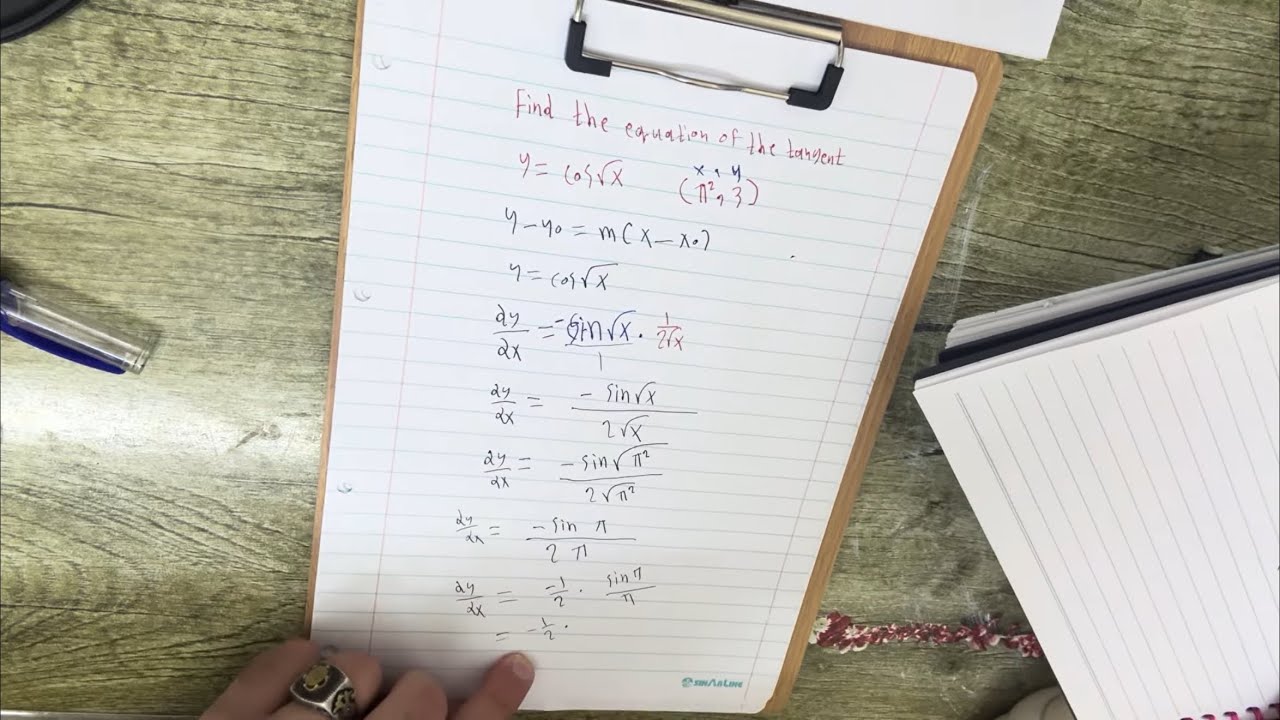 Find the equation of the tangent
y = cos√x (π², 3)
x, y
y - y₀ = m(x - x₀)
y = cos√x
dy/dx = -sin√x/1 · 1/2√x
dy/dx = -sin√x/2√x
dy/dx = -sin√π²/2√π²
dy/dx = -sin π/2 π
dy/dx = -1/2 · sin π/π
= -1/2 ·
SINARLINE